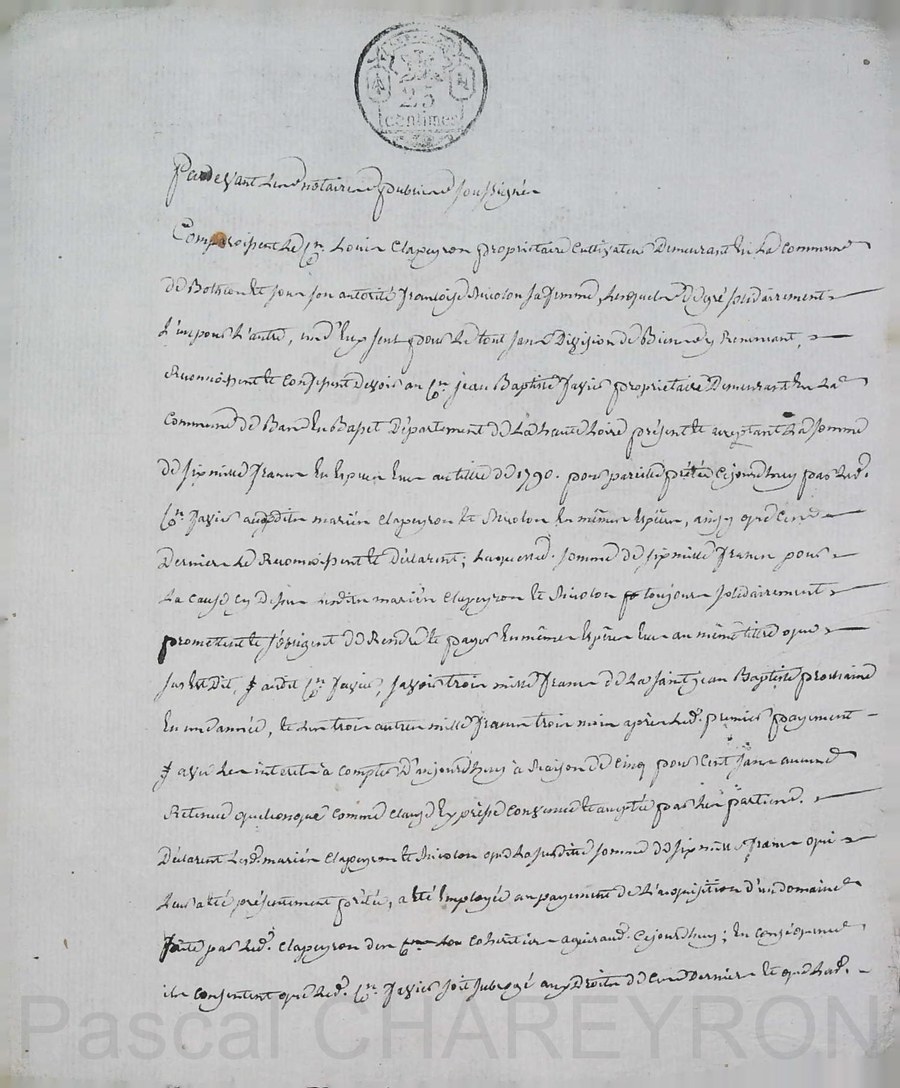 25
centimes
Pardevant les notaires publics soussignés
Comparoissent le Cen. Louis Clapeyron propriétaire cultivateur Demeurant en la commune
de et sous son autorité françoise Nicolon sa femme, lesquels de gré solidairement
L'un pour L'autre, un d'eux seul pour le tout sans Division de Biens y Renonçant,
Reconoissent et confessent devoir au Cen. jean Baptiste favier propriétaire Demeurant en la
Commune de Bas En Basset Département de La haute Loire présent et acceptant La somme
de six mille francs En Espèces au titre de 1790. pour pareille prêtée Cejourdhuy par led.
Cen. favier auxdits mariés Clapeyron et Nicolon En mêmes Espèces, ainsy que Ces
Derniers Le Reconoissent et Déclarent; Laquelle d. somme de six mille francs pour
La cause Cy dessus lesdits mariés Clapeyron et Nicolon toujours solidairement
promettent et s'obligent de Rendre et payer En mêmes Espèces au même titre que
susest Dit, audit Cen. favier, savoir trois mille francs de La saint jean Baptiste prochaine
En une année, et Les trois autres mille francs trois mois après Led. premier payement
avec Les interets à compter D'aujourdhuy à Raison de cinq pour cent sans aucune
Retenue quelconque comme clause Expresse convenue et acceptée par Les parties.
Déclarent Lesd. mariés Clapeyron et Nicolon que La susdite somme de six mille francs qui
Leur a été présentement prêtée, a été Employée au payement de L'acquisition d'un domaine
faite par Led. Clapeyron des cohéritiers Cejourdhuy; En conséquence,
ils consentent que Led. Cen. favier soit subrogé aux Droits de Ces Derniers et que Lad.
Pascal CHAREYRON